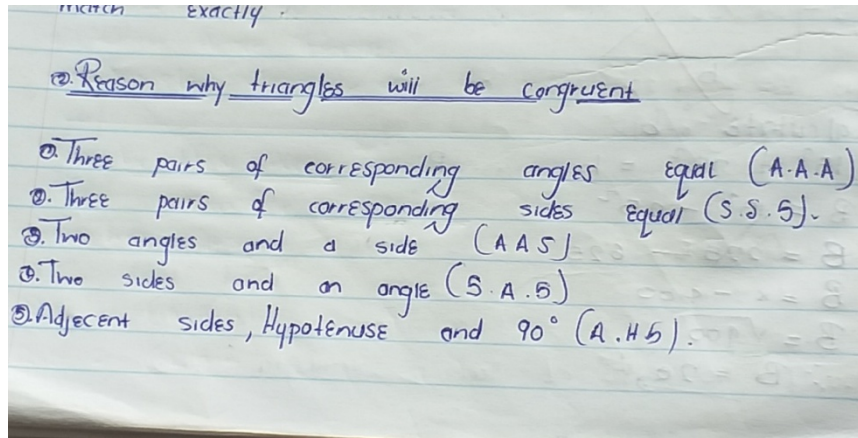 match exactly.
②. Reason why triangles will be congruent
①. Three pairs of corresponding angles equal (A.A.A)
②. Three pairs of corresponding sides equal (S.S.S).
③. Two angles and a side (AAS)
④. Two sides and an angle (S.A.S)
⑤. Adjecent sides, Hypotenuse and 90° (A.HS).